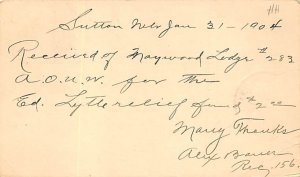 Sutton Neb Jan 31-1904
Received of Maywood Lodge #283
A.O.U.W. for the
Ed. Lytle relief fund $2.00
Many Thanks
Alex Bauer
Rec. 156.